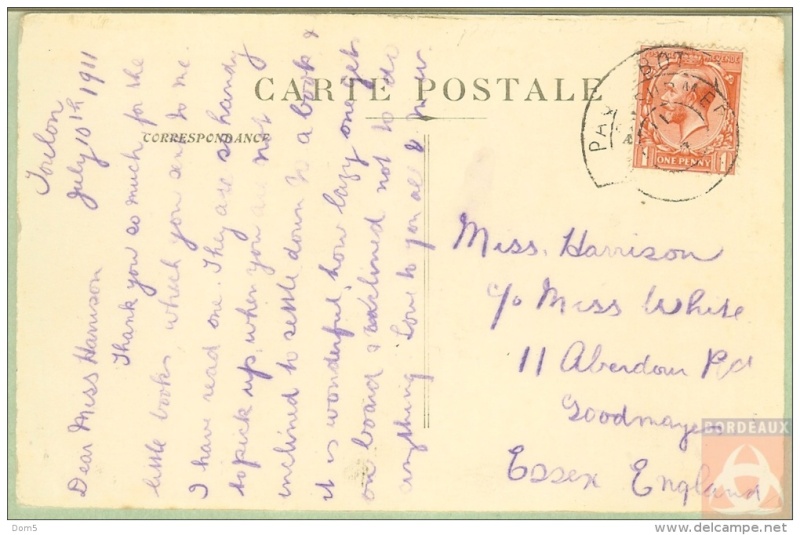 CARTE POSTALE
CORRESPONDANCE
Toulon
July 10th 1911
Dear Miss Harrison
Thank you so much for the
little books, which you sent to me.
I have read one. They are so handy
to pick up, when you are not
inclined to settle down to a book &
it is wonderful, how lazy one gets
on board & inclined not to do
anything Love to you all
ONE PENNY
1 1
PAQUEBOT
Miss. Harrison
c/o Miss White
11 Aberdour Rd
Goodmayes
Essex England
BORDEAUX
Dom5
www.delcampe.net